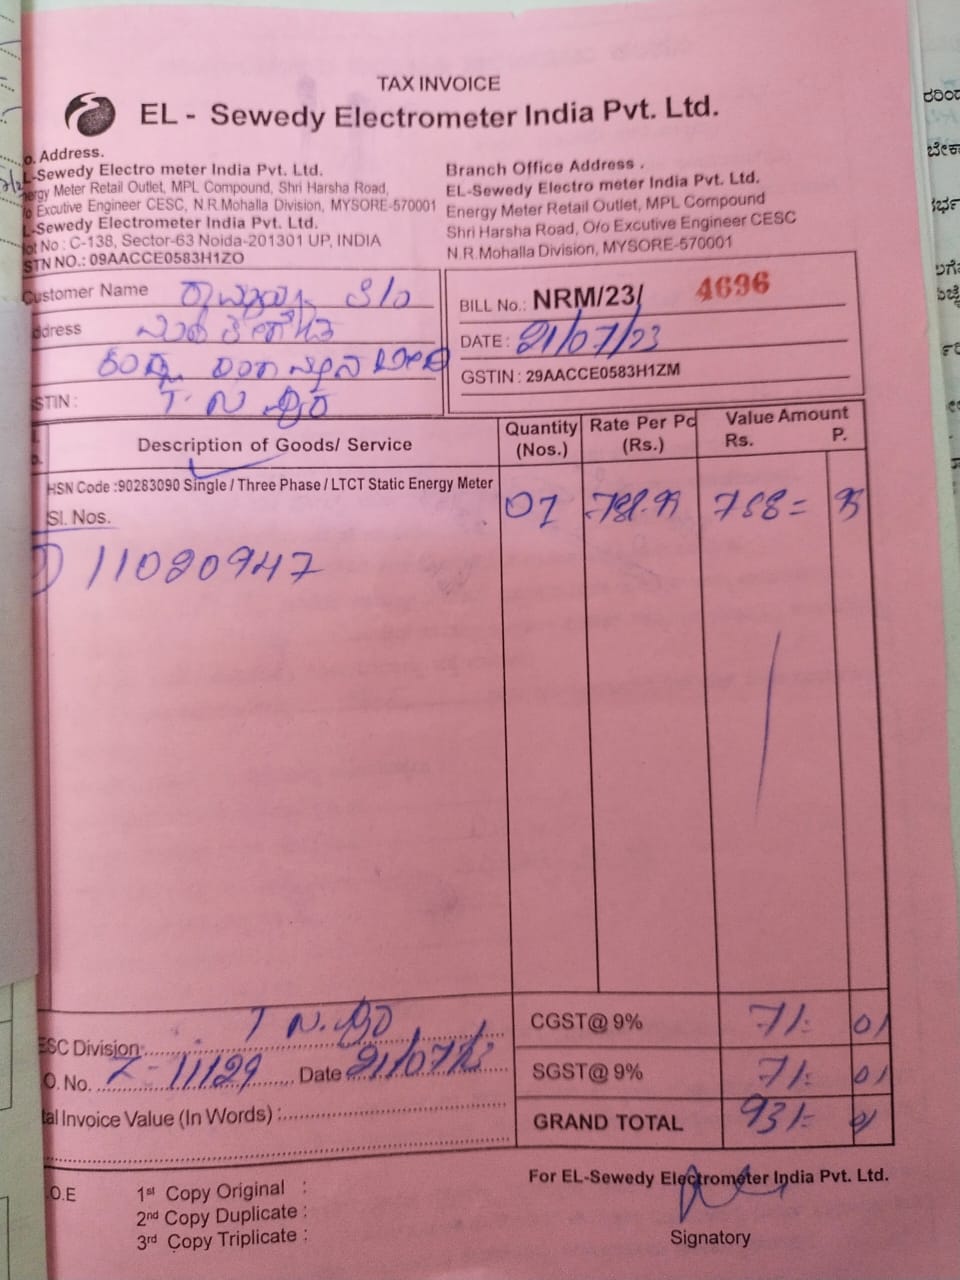 TAX INVOICE
EL - Sewedy Electrometer India Pvt. Ltd.
o. Address.
L-Sewedy Electro meter India Pvt. Ltd.
ergy Meter Retail Outlet, MPL Compound, Shri Harsha Road,
o Excutive Engineer CESC, N.R.Mohalla Division, MYSORE-570001
L-Sewedy Electrometer India Pvt. Ltd.
lot No : C-138, Sector-63 Noida-201301 UP, INDIA
STN NO.: 09AACCE0583H1ZO
Branch Office Address .
EL-Sewedy Electro meter India Pvt. Ltd.
Energy Meter Retail Outlet, MPL Compound
Shri Harsha Road, O/o Excutive Engineer CESC
N.R.Mohalla Division, MYSORE-570001
Customer Name S/o
ddress
STIN :
BILL No.: NRM/23/ 4696
DATE : 21/07/23
GSTIN : 29AACCE0583H1ZM
Description of Goods/ Service
Quantity (Nos.)
Rate Per Pc (Rs.)
Value Amount
Rs. P.
HSN Code :90283090 Single / Three Phase / LTCT Static Energy Meter
Sl. Nos.
01 788= 95
1) 11080947
CGST@ 9% 71= 01
SGST@ 9% 71= 01
GRAND TOTAL 931=
ESC Division
O. No. 7-11129 Date 21/07/23
tal Invoice Value (In Words) :
For EL-Sewedy Electrometer India Pvt. Ltd.
.O.E
1st Copy Original :
2nd Copy Duplicate :
3rd Copy Triplicate :
Signatory